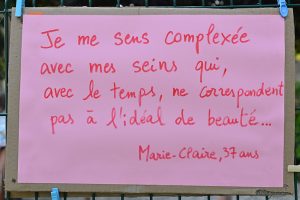 Je me sens complexée
avec mes seins qui,
avec le temps, ne correspondent
pas à l'idéal de beauté...
Marie-Claire, 37 ans